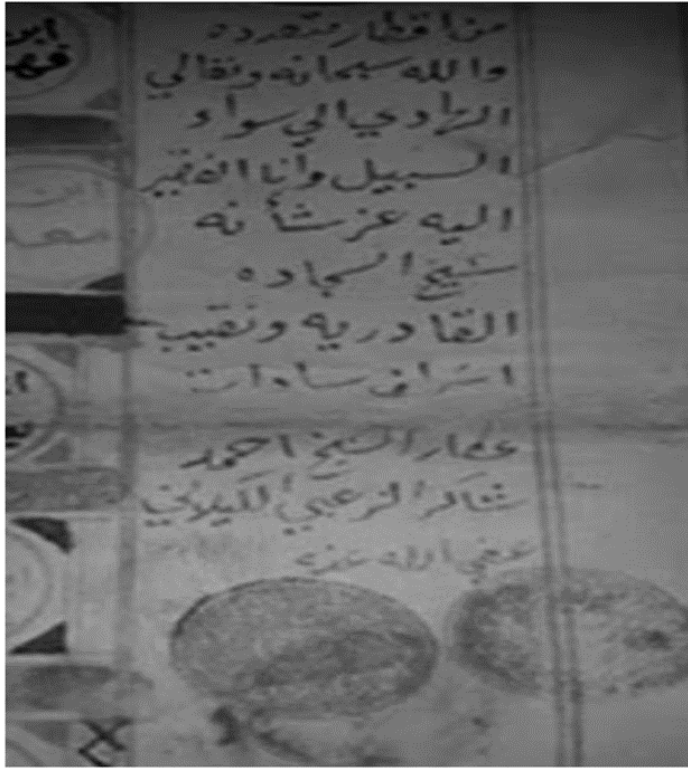 من اقطار متعدده
والله سبحانه وتعالي
الهادي الي سواء
السبيل وانا الفقير
اليه عز شأنه
شيخ السجاده
القادريه ونقيب
اشراف سادات
عكار الشيخ احمد
شاكر الزعبي الكيلاني
عفي الله عنه
ابن